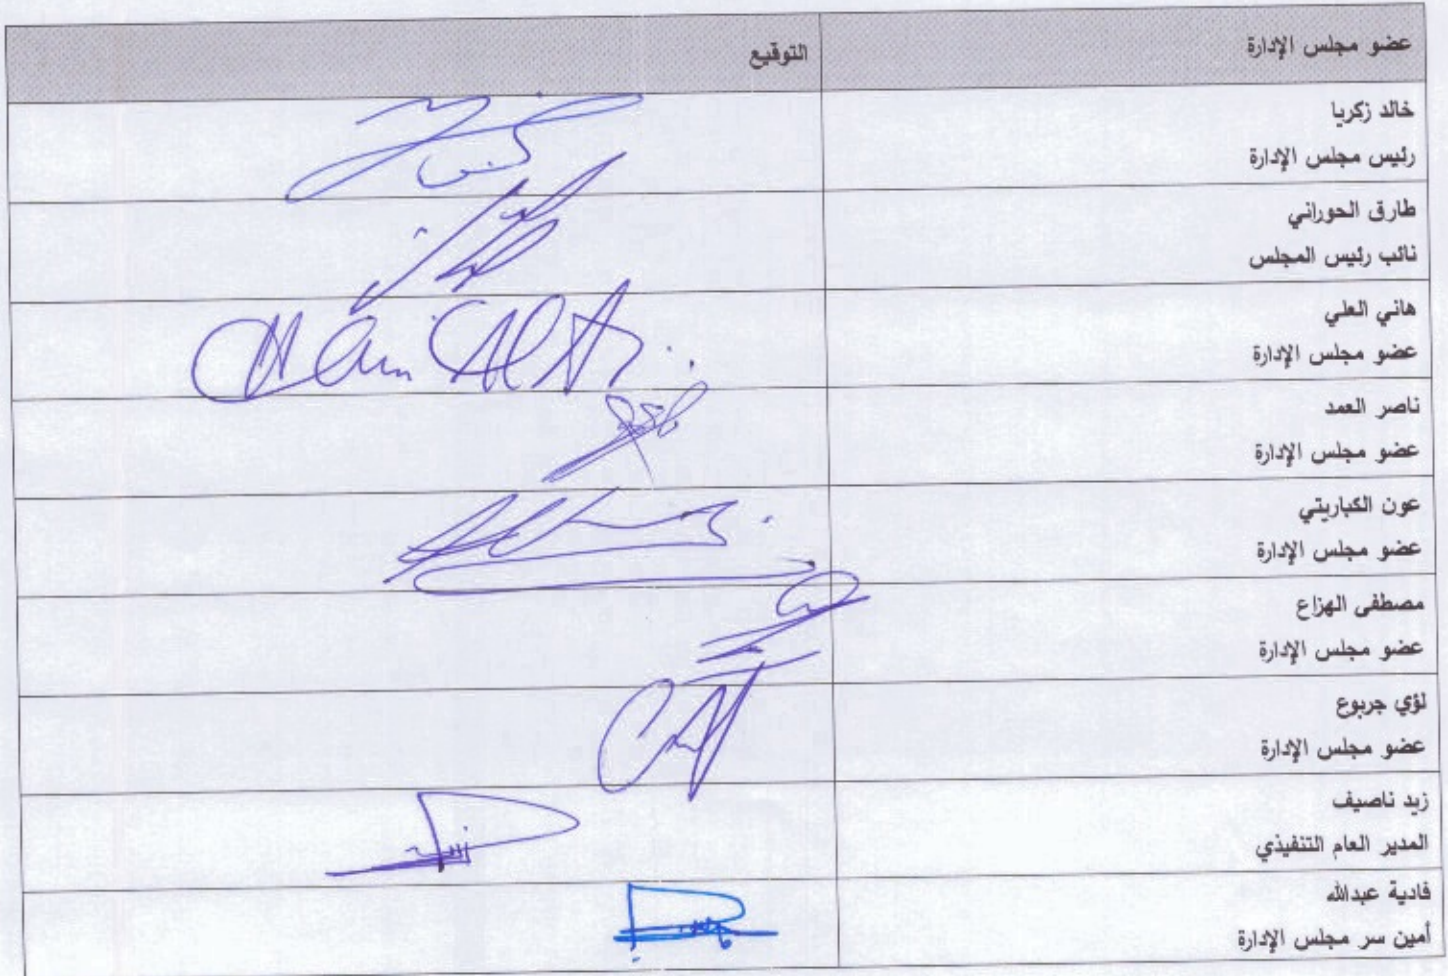 عضو مجلس الإدارة
التوقيع
خالد زكريا
رئيس مجلس الإدارة
طارق الحوراني
نائب رئيس المجلس
هاني العلي
عضو مجلس الإدارة
Hani Al Ali
ناصر العمد
عضو مجلس الإدارة
عون الكباريتي
عضو مجلس الإدارة
مصطفى الهزاع
عضو مجلس الإدارة
لؤي جربوع
عضو مجلس الإدارة
زيد ناصيف
المدير العام التنفيذي
فادية عبدالله
أمين سر مجلس الإدارة